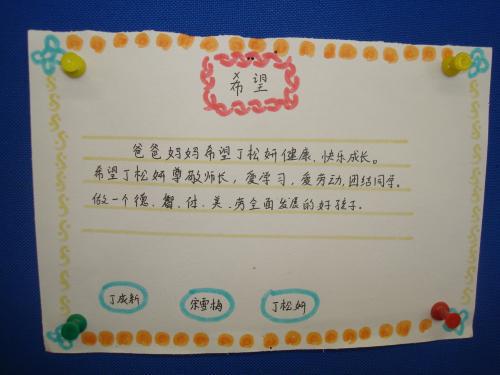 希望
爸爸妈妈希望丁松妍健康、快乐成长。
希望丁松妍尊敬师长，爱学习，爱劳动，团结同学。
做一个德、智、体、美、劳全面发展的好孩子。
丁成新
宋雪梅
丁松妍